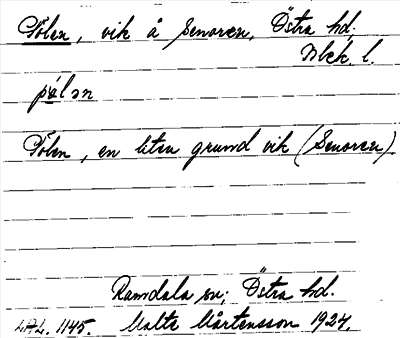 Pölen, vik å Senoren, Östra hd.
Blek. l.
pø̀lən
Pölen, en liten grund vik (Senoren)
Ramdala sn; Östra hd.
L.A.L. 1145. Malte Mårtensson 1924.